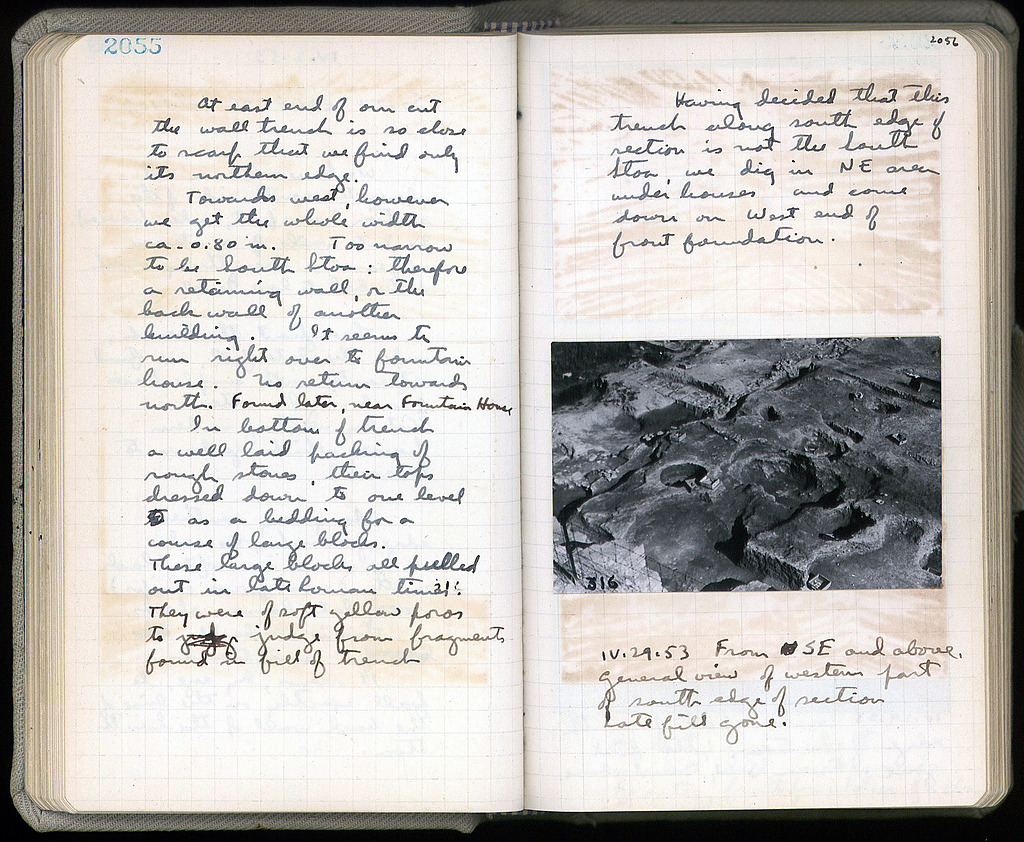 2055
At east end of our cut
the wall trench is so close
to scarp that we find only
its northern edge.
Towards west, however
we get the whole width
ca. 0.80 m. Too narrow
to be South Stoa : therefore
a retaining wall, or the
back wall of another
building. It seems to
run right over the fountain
house. No return towards
north. Found later, near Fountain House
In bottom of trench
a well laid packing of
rough stones, their tops
dressed down to one level
as a bedding for a
course of large blocks.
These large blocks all pulled
out in late Roman times!
They were of soft yellow poros
to judge from fragments
found in fill of trench
2056
Having decided that this
trench along south edge of
section is not the South
Stoa, we dig in NE area
under houses and come
down on West end of
front foundation.
816
IV.29.53 From SE and above.
General view of western part
of south edge of section
Late fill gone.